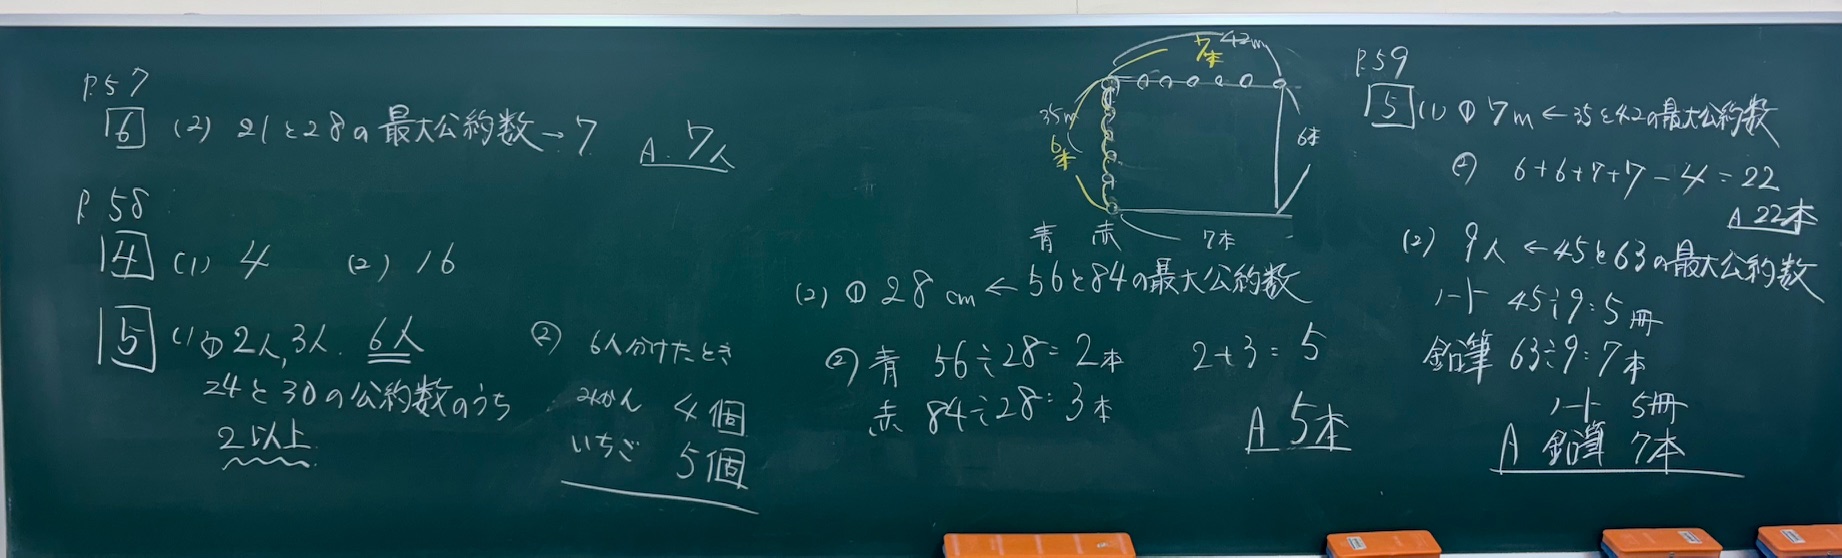 P.57
6 (2) 21と28の最大公約数→7 A 7人
P.58
4 (1) 4 (2) 16
5 (1) ① 2人, 3人. 6人
24と30の公約数のうち
2以上
② 6人分けたとき
みかん 4個
いちご 5個
42m
7本
35m
6本
6本
7本
青 赤
(2) ① 28cm ← 56と84の最大公約数
② 青 56÷28=2本 2+3=5
赤 84÷28=3本
A 5本
P.59
5 (1) ① 7m ← 35と42の最大公約数
② 6+6+7+7-4=22
A 22本
(2) 9人 ← 45と63の最大公約数
ノート 45÷9=5冊
鉛筆 63÷9=7本
ノート 5冊
A 鉛筆 7本